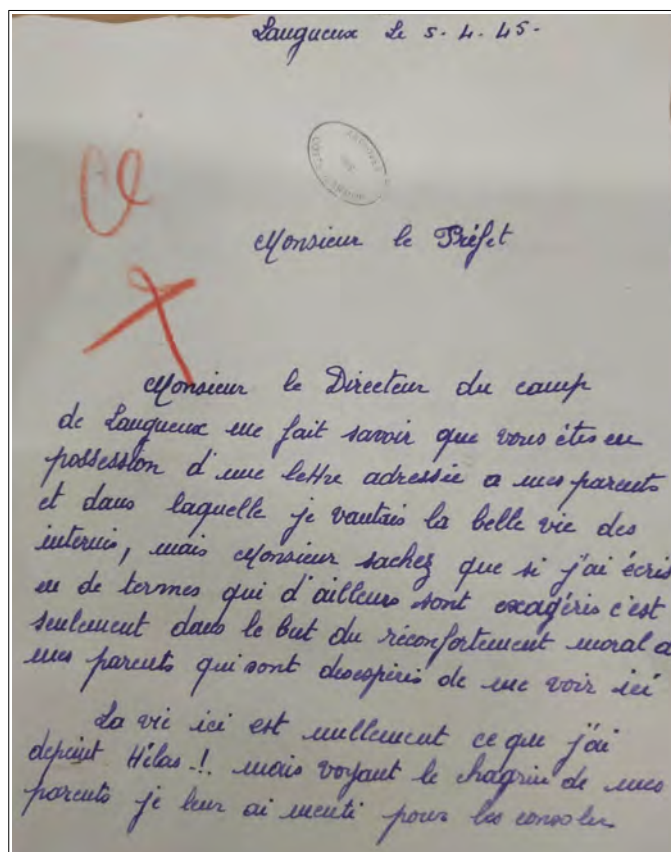 Langueux Le 5.4.45.
Ce
Monsieur le Préfet
Monsieur le Directeur du camp
de Langueux me fait savoir que vous êtes en
possession d'une lettre adressée a mes parents
et dans laquelle je vantais la belle vie des
internés, mais Monsieur sachez que si j'ai écris
en de termes qui d'ailleurs sont exagéris c'est
seulement dans le but du réconfortement moral a
mes parents qui sont desespérés de me voir ici
La vie ici est nullement ce que j'ai
depeint Hélas.!. mais voyant le chagrin de mes
parents je leur ai menti pour les consoler